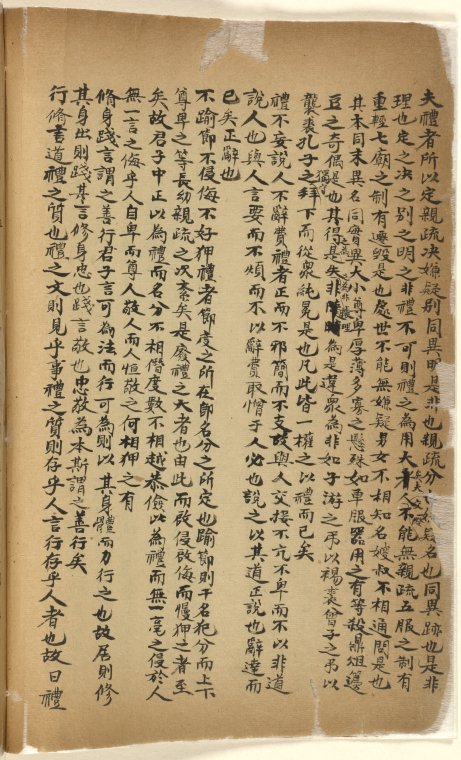 夫禮者所以定親疏決嫌疑別同異明是非也親疏分也嫌疑名也同異跡也是非
理也定之決之別之明之非禮不可則禮之為用大矣人不能無親疏五服之制有
重輕七廟之制有遷毀是也處世不能無嫌疑男女不相知名嫂叔不相通問是也
其本同末異名同實異大小尊卑厚薄多寡之懸殊如車服器用之有等殺鼎俎籩
豆之奇偶是也其得是失非為是違眾為非如子游之弔以裼裘曾子之弔以
襲裘孔子之拜下而從眾純冕是也凡此皆一權之以禮而已矣
禮不妄說人不辭費禮者正而不邪簡而不支故與人交接不亢不卑而不以非道
說人也與人言要而不煩而不以辭費取憎于人必也說之以其道正說也辭達而
已矣正辭也
不踰節不侵侮不好狎禮者節度之所在卽名分之所定也踰節則干名犯分而上下
尊卑之等長幼親疏之次紊矣是廢禮之大者也由此而啟侵啟侮而慢狎之者至
矣故君子中正以為禮而名分不相僭度數不相越恭儉以為禮而無一毫之侵於人
無一言之侮乎人自卑而尊人敬人而人恒敬之何相狎之有
脩身踐言謂之善行君子言可為法而行可為則以其身體而力行之也故居則修
其身出則踐其言修身忠也踐言敬也忠敬為本斯謂之善行矣
行脩言道禮之質也禮之文則見乎事禮之質則存乎人言行存乎人者也故曰禮